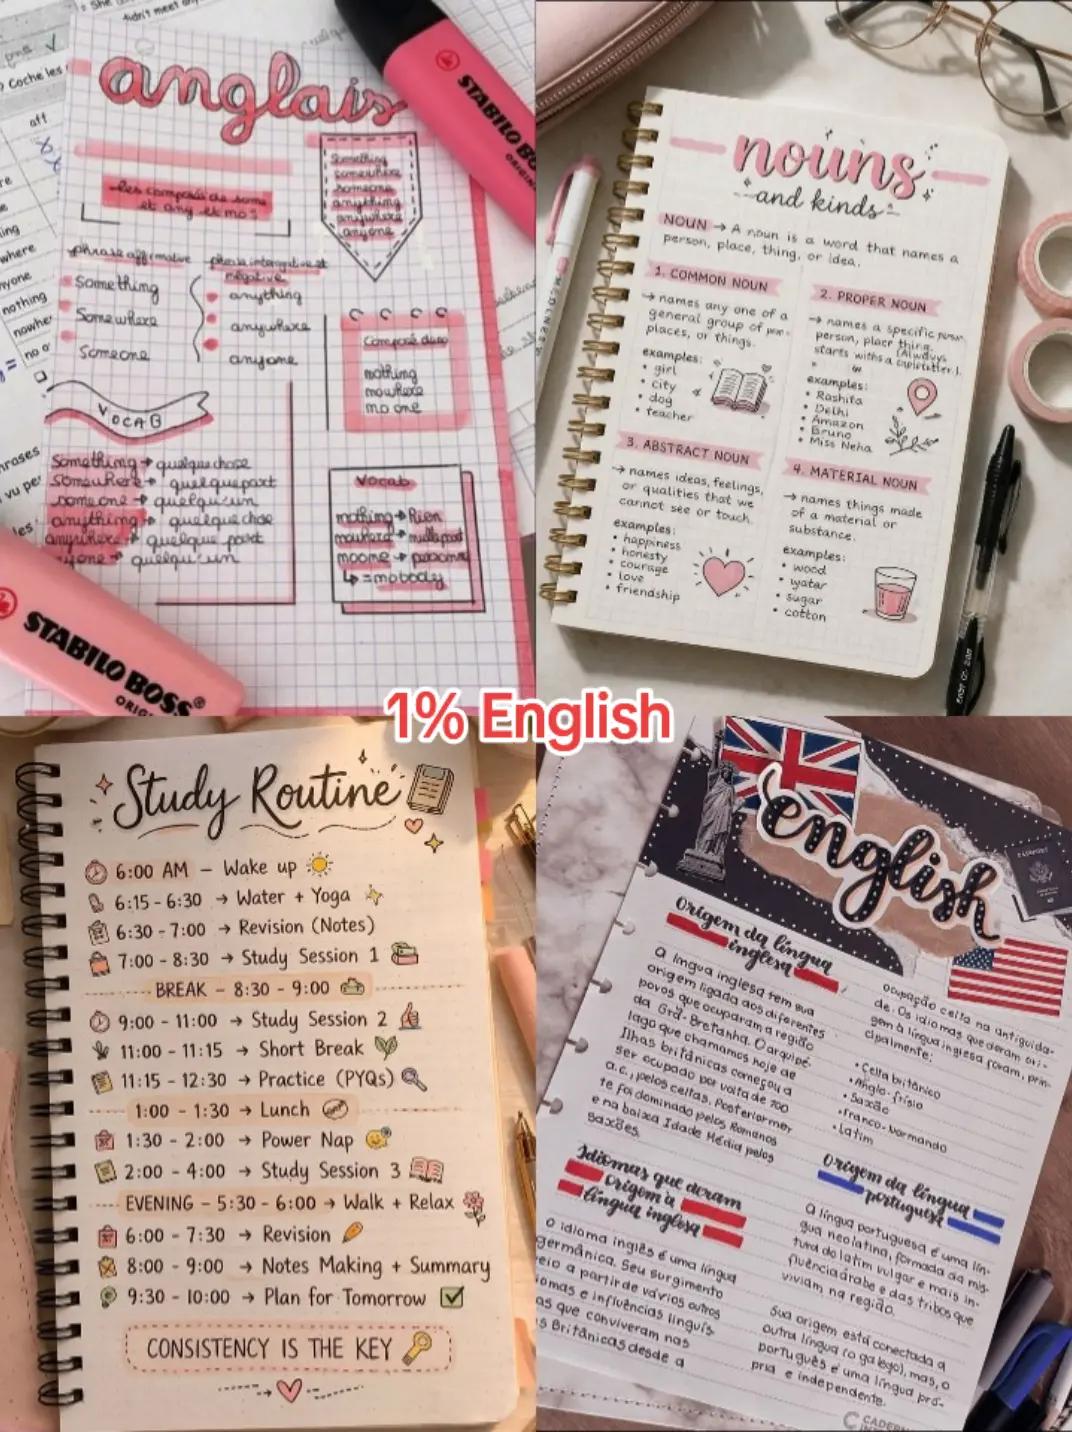 anglais
les composés de some
et any et no :
phrase affirmative
Something
Somewhere
Someone
phrase interrogative et
négative
anything
anywhere
anyone
Something
somewhere
someone
anything
anywhere
anyone
Composé de no
nothing
nowhere
no one
VOCAB
Something → quelque chose
Somewhere → quelque part
someone → quelqu'un
anything → quelque chose
anywhere → quelque part
quelqu'un
Vocab
nothing → Rien
nowhere → nulle part
noone → personne
↳ = nobody
STABILO BOSS
STABILO BOSS
nouns
and kinds
NOUN → A noun is a word that names a
person, place, thing, or idea.
1. COMMON NOUN
→ names any one of a
general group of
places, or things.
examples:
• girl
• city
• dog
• teacher
2. PROPER NOUN
→ names a specific
person, place thing.
(Always
starts with a
examples:
• Rashita
• Delhi
• Amazon
• Bruno
• Miss Neha
3. ABSTRACT NOUN
→ names ideas, feelings,
or qualities that we
cannot see or touch.
examples:
• happiness
• honesty
• courage
• love
• friendship
4. MATERIAL NOUN
→ names things made
of a material or
substance.
examples:
• wood
• yatar
• sugar
• cotton
1% English
Study Routine
6:00 AM – Wake up
6:15 - 6:30 → Water + Yoga
6:30 - 7:00 → Revision (Notes)
7:00 - 8:30 → Study Session 1
BREAK – 8:30 - 9:00
9:00 - 11:00 → Study Session 2
11:00 - 11:15 → Short Break
11:15 - 12:30 → Practice (PYQs)
1:00 - 1:30 → Lunch
1:30 - 2:00 → Power Nap
2:00 - 4:00 → Study Session 3
EVENING – 5:30 - 6:00 → Walk + Relax
6:00 - 7:30 → Revision
8:00 - 9:00 → Notes Making + Summary
9:30 - 10:00 → Plan for Tomorrow
CONSISTENCY IS THE KEY
english
PASSPORT
Origem da língua
inglesa
A língua inglesa tem sua
origem ligada aos diferentes
povos que ocuparam a região
da Grã-Bretanha. O arquipé-
lago que chamamos hoje de
Ilhas britânicas começou a
ser ocupado por volta de 700
a.c., pelos celtas. Posteriormen
te foi dominado pelos Romanos
e na baixa Idade Média pelos
Saxões.
Idiomas que deram
origem a
língua inglesa
O idioma inglês é uma língua
germânica. Seu surgimento
veio a partir de vários outros
idiomas e influências linguís-
as que conviveram nas
s Britânicas desde a
ocupação celta na antiguida-
de. Os idiomas que deram ori-
gem à língua inglesa foram, prin-
cipalmente:
• Celta britânico
• Anglo-frísio
• Saxão
• Franco-normando
• Latim
Origem da língua
portuguesa
A língua portuguesa é uma lín-
gua neolatina, formada da mis-
tura do latim vulgar e mais in-
fluência árabe e das tribos que
viviam na região.
Sua origem está conectada a
outra língua (o galego), mas, o
português é uma língua pró-
pria e independente.